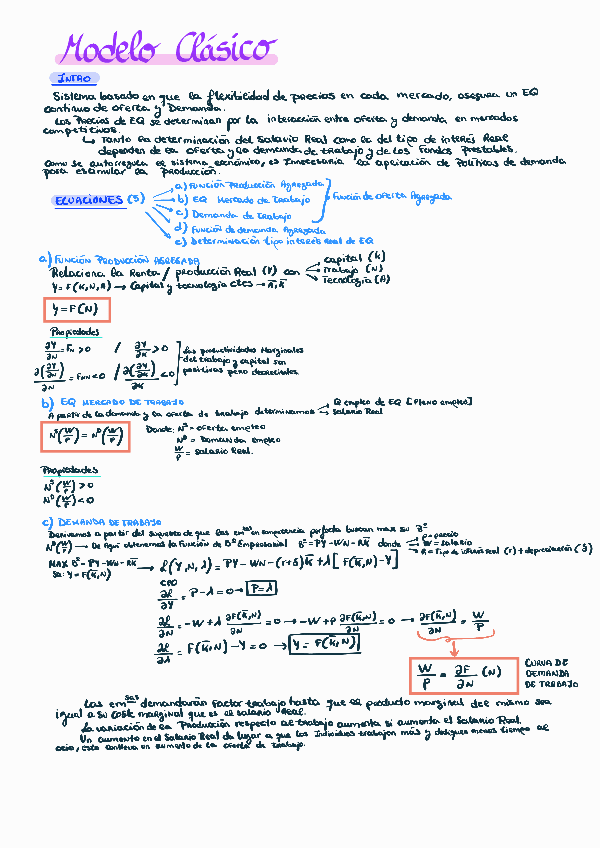 Modelo Clásico
INTRO
Sistema basado en que la flexibilidad de precios en cada mercado, asegura un EQ
continuo de oferta y Demanda.
Los Precios de EQ se determinan por la interacción entre oferta y demanda en mercados
competitivos.
↳ Tanto la determinación del Salario Real como la del tipo de interés Real
dependen de la oferta y la demanda de trabajo y de los Fondos Prestables.
Como se autorregula el sistema económico, es Innecesaria la aplicación de Políticas de demanda
para estimular la producción.
ECUACIONES (5)
a) Función Producción Agregada
b) EQ Mercado de Trabajo
c) Demanda de Trabajo
Función de oferta Agregada
d) Función de demanda Agregada
e) Determinación tipo interés Real de EQ
a) FUNCIÓN PRODUCCIÓN AGREGADA
Relaciona la Renta / producción Real (Y) con
capital (K)
Trabajo (N)
Tecnología (A)
Y = F(K, N, A) → Capital y tecnología ctes → A̅, K̅
Y = F(N)
Propiedades
∂Y/∂N = F_N > 0 / ∂Y/∂K > 0
∂(∂Y/∂N)/∂N = F_NN < 0 / ∂(∂Y/∂K)/∂K < 0
Las productividades Marginales
del trabajo y capital son
positivas pero decrecientes
b) EQ MERCADO DE TRABAJO
A partir de la demanda y la oferta de trabajo determinamos
Q empleo de EQ [Pleno empleo]
Salario Real
N^S(W/P) = N^D(W/P)
Donde: N^S = oferta empleo
N^D = Demanda empleo
W/P = Salario Real.
Propiedades
N^S(W/P) > 0
N^D(W/P) < 0
c) DEMANDA DE TRABAJO
Derivamos a partir del supuesto de que las em^sas en competencia perfecta buscan max su B^o
N^D(W/P) → De aquí obtenemos la Función de B^o Empresarial B^o = PY − WN − RK̅ donde
P = precio
W = salario
R = Tipo de interés Real (r) + depreciación (δ)
MAX B^o = PY − WN − RK̅
Sa: Y = F(K̅, N)
→ ℓ(Y, N, λ) = PY − WN − (r+δ)K̅ + λ[F(K̅, N) − Y]
CPO
∂ℓ/∂Y = P − λ = 0 → P = λ
∂ℓ/∂N = −W + λ ∂F(K̅,N)/∂N = 0 → −W + P ∂F(K̅,N)/∂N = 0 → ∂F(K̅,N)/∂N = W/P
∂ℓ/∂λ = F(K̅, N) − Y = 0 → Y = F(K̅, N)
W/P = ∂F/∂N (N)
CURVA DE
DEMANDA
DE TRABAJO
Las em^sas demandarán factor trabajo hasta que el producto marginal del mismo sea
igual a su coste marginal que es el Salario Real.
La variación de la Producción respecto al trabajo aumenta si aumenta el Salario Real.
Un aumento en el Salario Real da lugar a que los Individuos trabajen más y dediquen menos tiempo al
ocio, esto conlleva un aumento de la oferta de Trabajo.